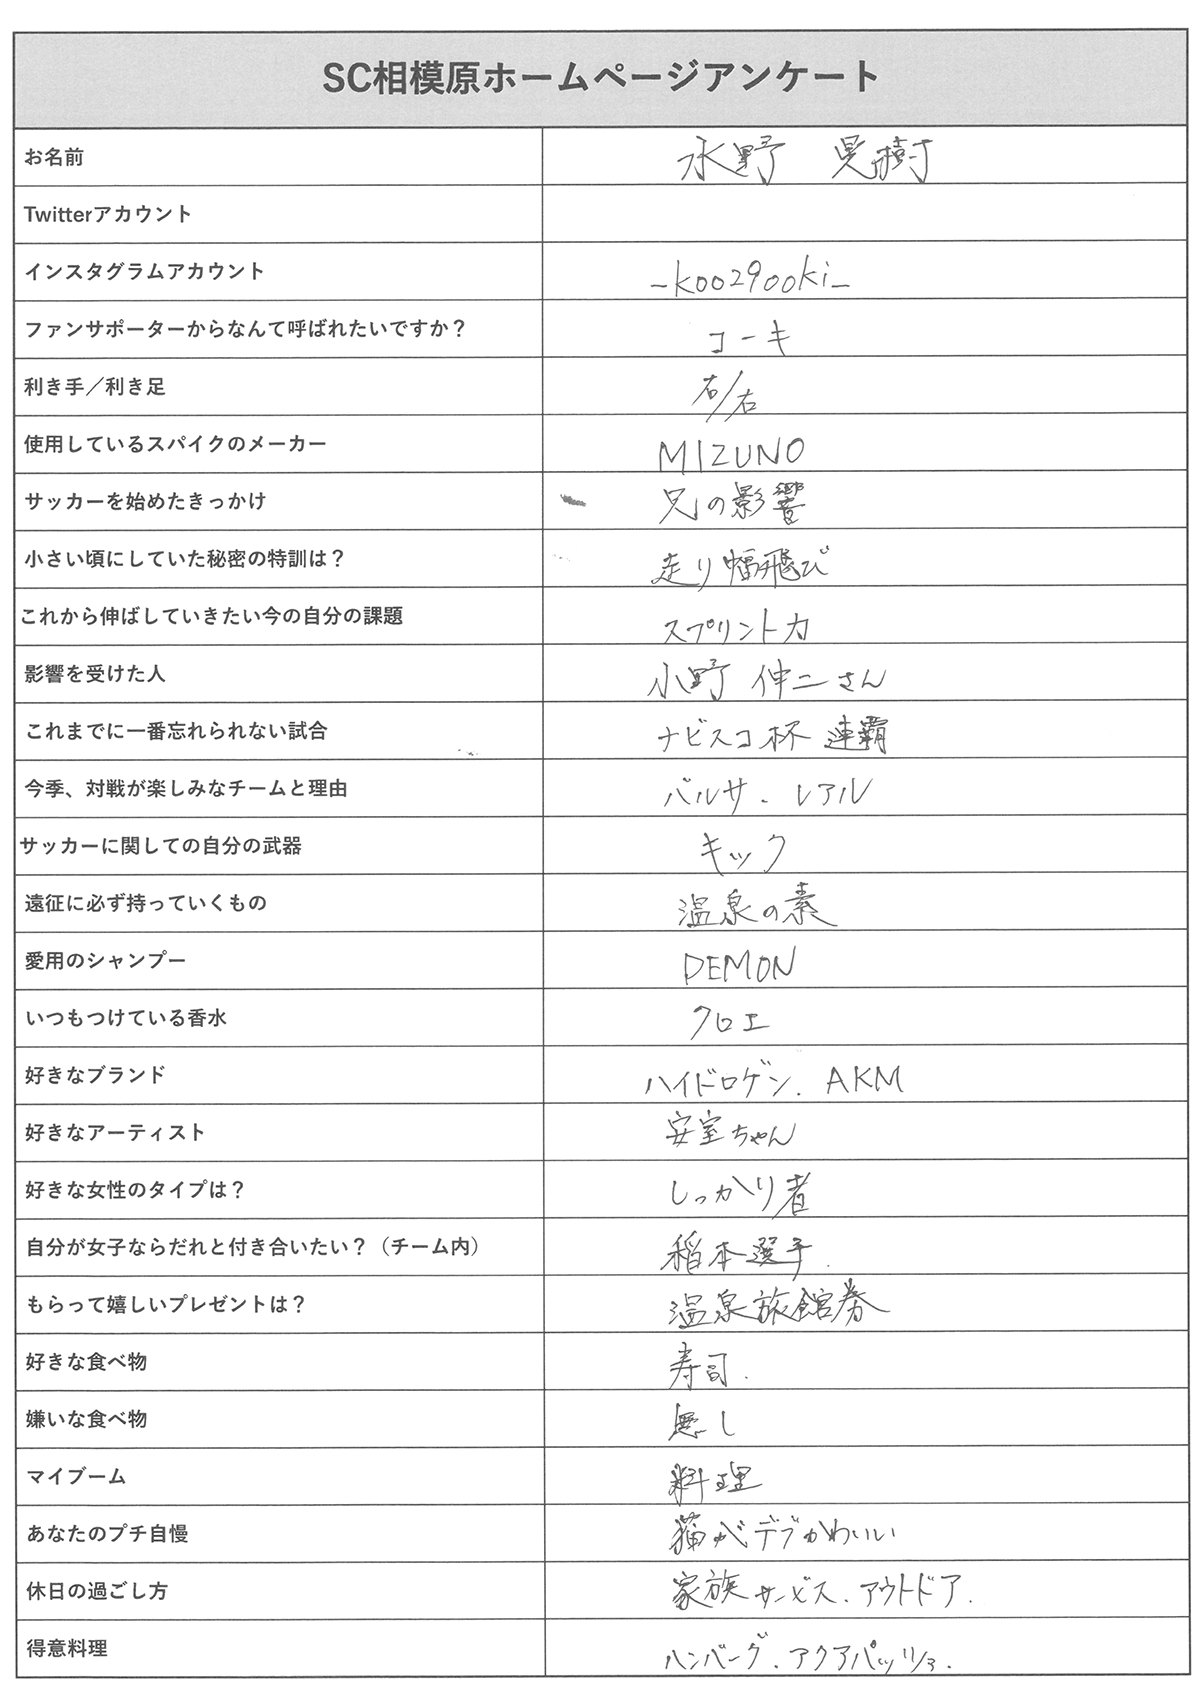 SC相模原ホームページアンケート
お名前 水野 晃樹
Twitterアカウント
インスタグラムアカウント _koo29ooki_
ファンサポーターからなんて呼ばれたいですか？ コーキ
利き手／利き足 右/右
使用しているスパイクのメーカー MIZUNO
サッカーを始めたきっかけ 兄の影響
小さい頃にしていた秘密の特訓は？ 走り幅飛び
これから伸ばしていきたい今の自分の課題 スプリント力
影響を受けた人 小野 伸二さん
これまでに一番忘れられない試合 ナビスコ杯 連覇
今季、対戦が楽しみなチームと理由 バルサ．レアル
サッカーに関しての自分の武器 キック
遠征に必ず持っていくもの 温泉の素
愛用のシャンプー DEMON
いつもつけている香水 クロエ
好きなブランド ハイドロゲン．AKM
好きなアーティスト 安室ちゃん
好きな女性のタイプは？ しっかり者
自分が女子ならだれと付き合いたい？（チーム内） 稲本選手．
もらって嬉しいプレゼントは？ 温泉旅館券
好きな食べ物 寿司．
嫌いな食べ物 無し
マイブーム 料理
あなたのプチ自慢 猫がデブかわいい
休日の過ごし方 家族サービス．アウトドア．
得意料理 ハンバーグ．アクアパッツァ．